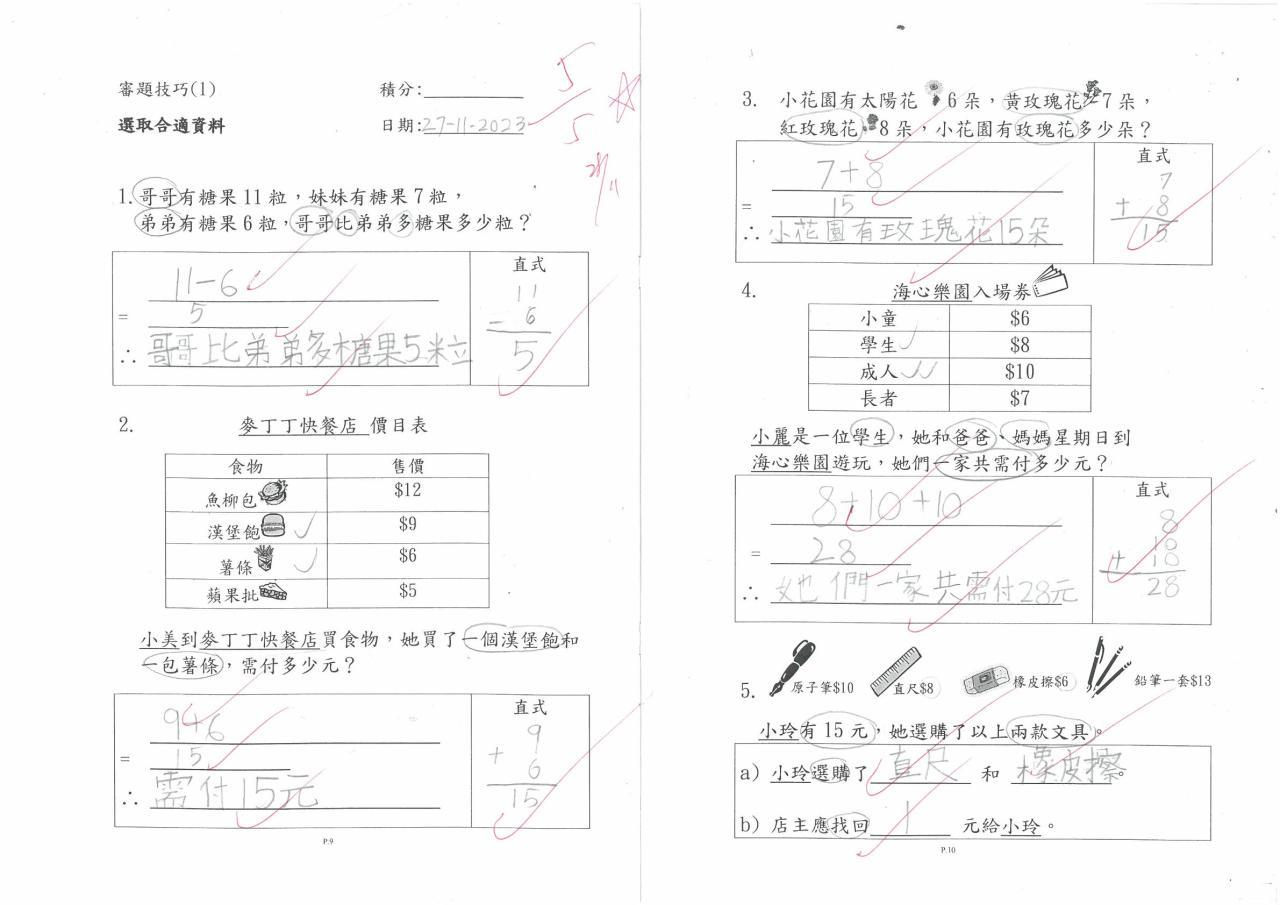 審題技巧(1)
積分:
5
5
選取合適資料
日期:27-11-2023
1.哥哥有糖果11粒，妹妹有糖果7粒，
弟弟有糖果6粒，哥哥比弟弟多糖果多少粒？
11-6
=
5
∴ 哥哥比弟弟多糖果5粒
直式
11
- 6
5
2.
麥丁丁快餐店 價目表
食物 售價
魚柳包 $12
漢堡飽 $9
薯條 $6
蘋果批 $5
小美到麥丁丁快餐店買食物，她買了一個漢堡飽和
一包薯條，需付多少元？
9+6
=
15
∴ 需付15元
直式
9
+ 6
15
P.9
3. 小花園有太陽花 6朵，黃玫瑰花 7朵，
紅玫瑰花 8朵，小花園有玫瑰花多少朵？
7+8
=
15
∴ 小花園有玫瑰花15朵
直式
7
+ 8
15
4.
海心樂園入場券
小童 $6
學生 $8
成人 $10
長者 $7
小麗是一位學生，她和爸爸、媽媽星期日到
海心樂園遊玩，她們一家共需付多少元？
8+10+10
=
28
∴ 她們一家共需付28元
直式
8
10
+ 10
28
5. 原子筆$10 直尺$8 橡皮擦$6 鉛筆一套$13
小玲有15元，她選購了以上兩款文具。
a) 小玲選購了 直尺 和 橡皮擦。
b) 店主應找回 1 元給小玲。
P.10